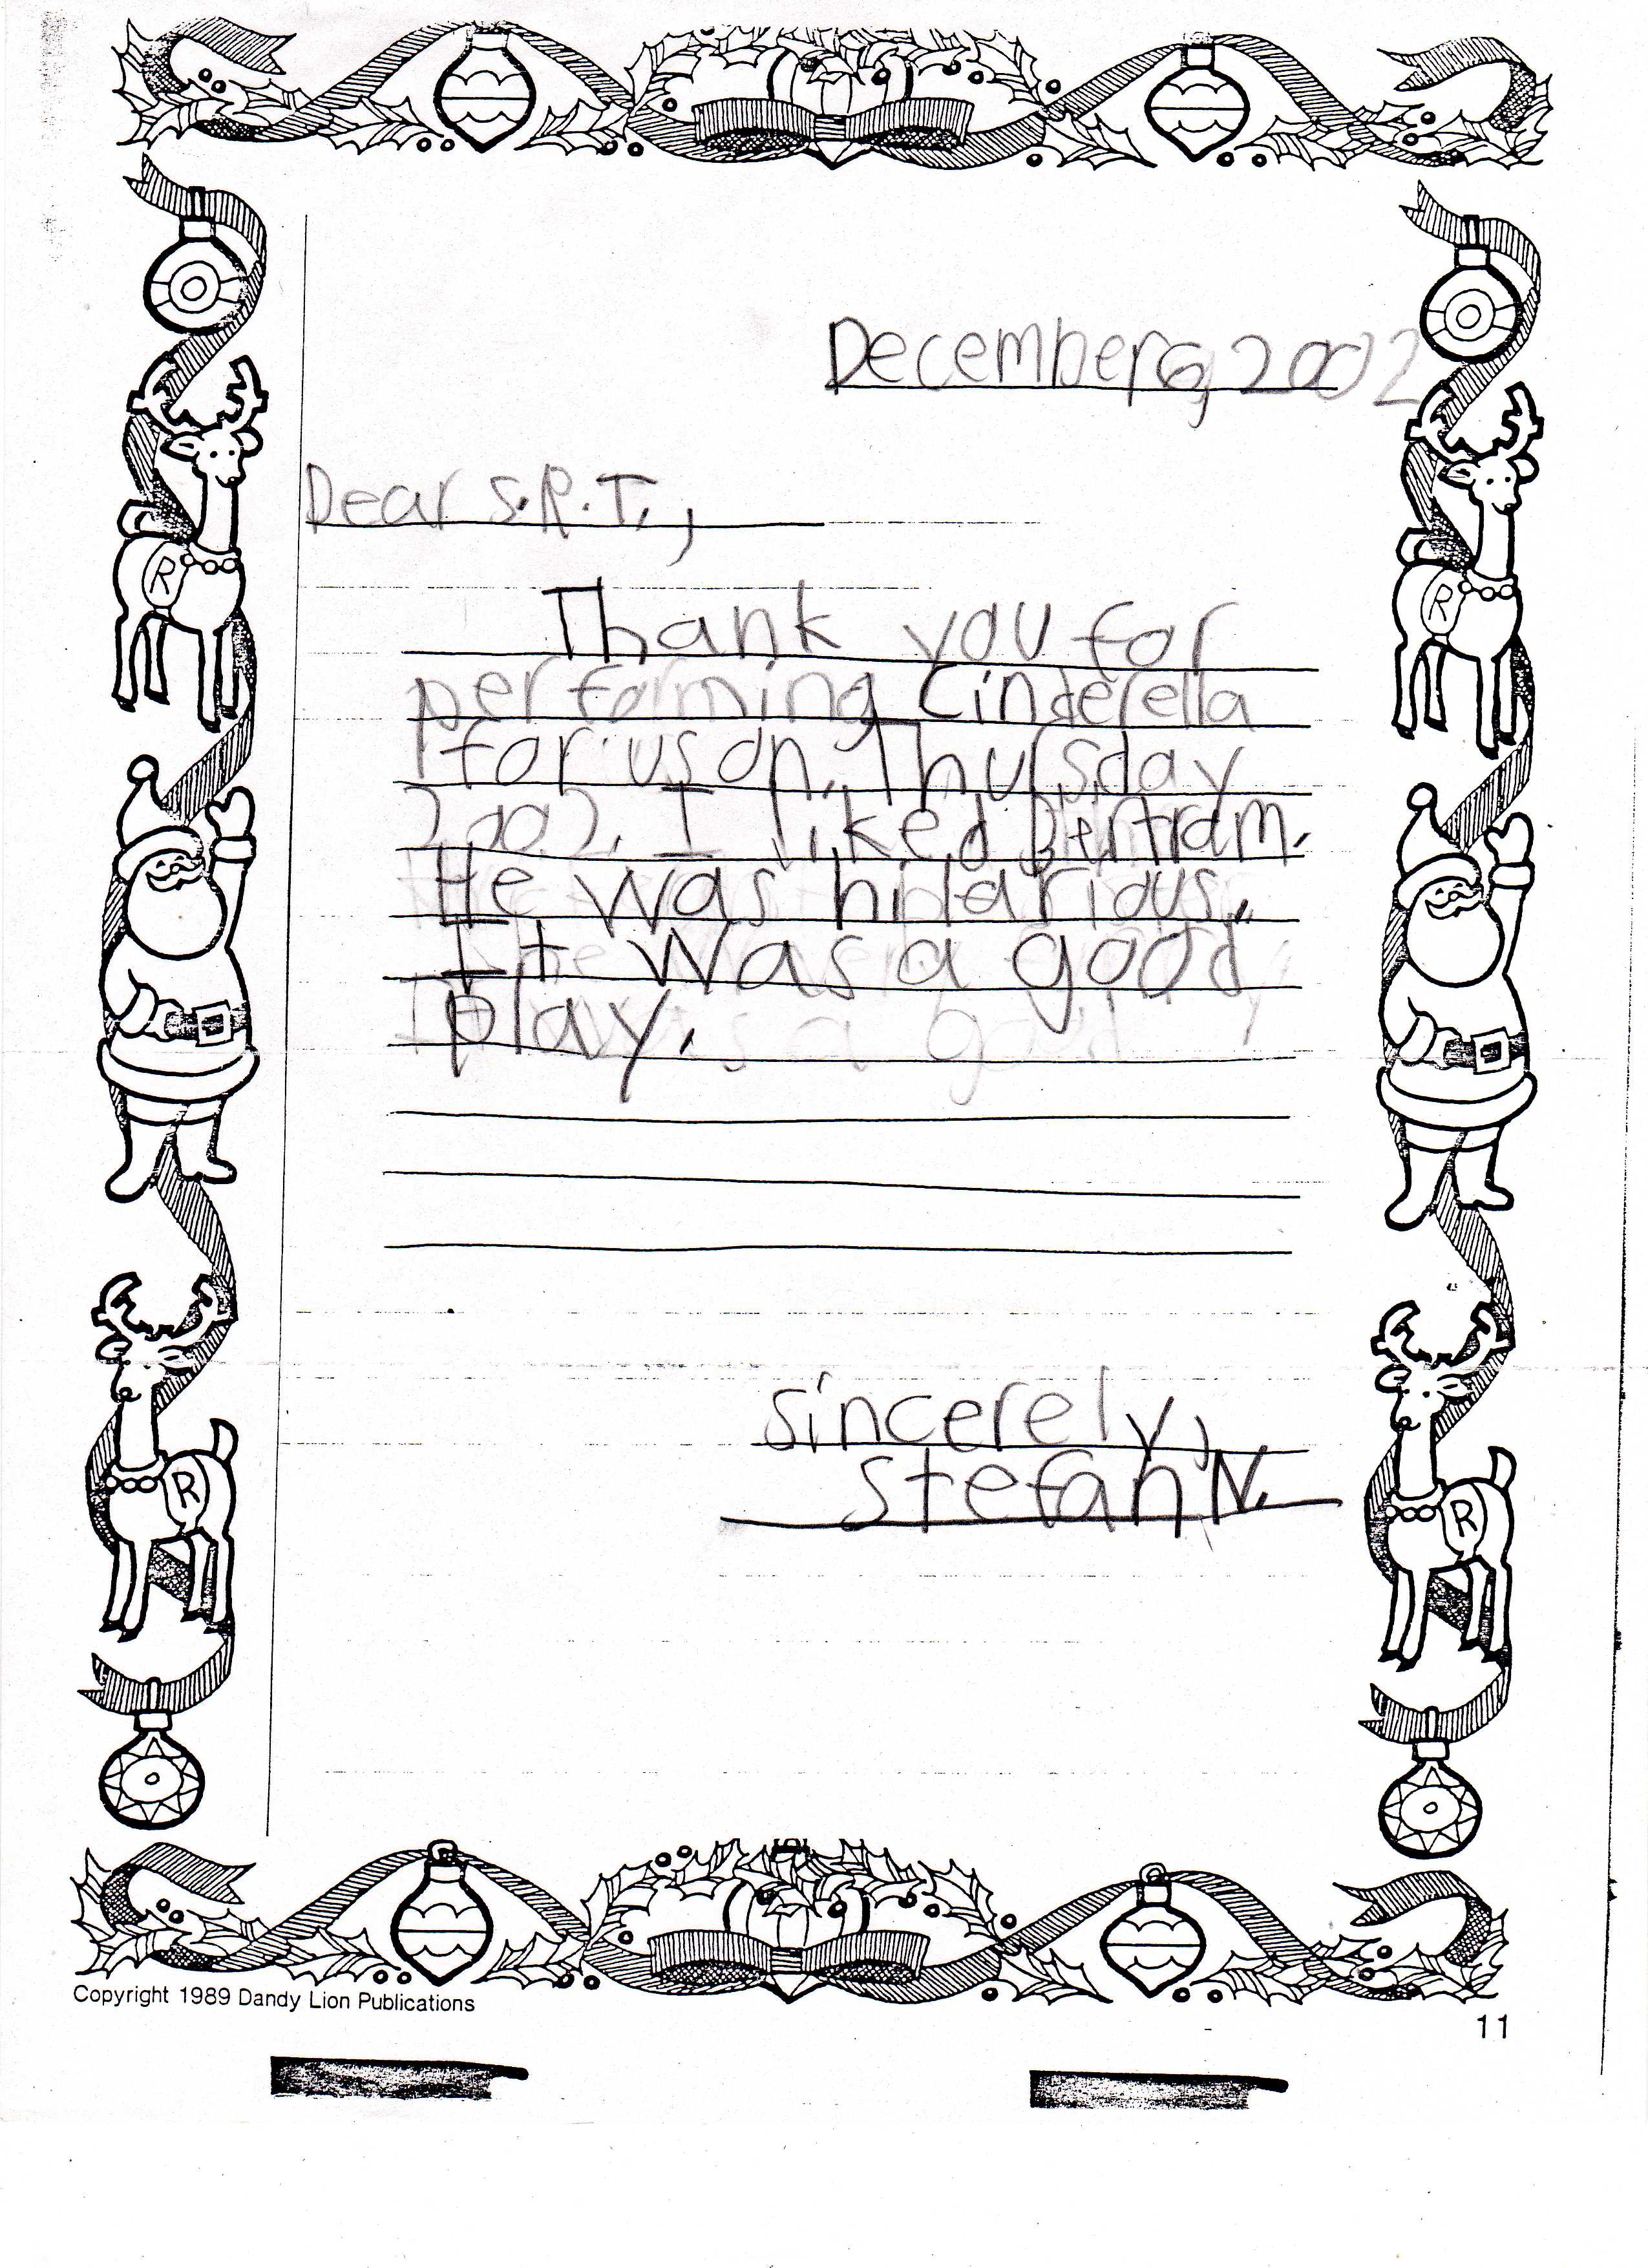 December 6, 2002
Dear S.R.T.,
Thank you for
performing Cinderella
for us on Thursday
2002. I liked Bertram.
He was hilarious.
It was a good
play.
sincerely,
Stefan N.
R
R
R
R
Copyright 1989 Dandy Lion Publications
11